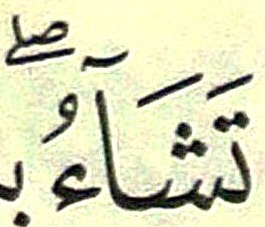 تَشَآءُ ۖ بِ